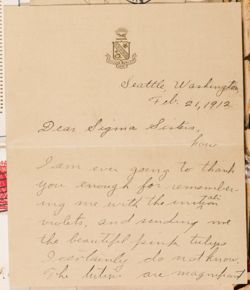 Seattle, Washington
Feb. 21, 1912
Dear Sigma Sisters,
How
I am ever going to thank
you enough for remember-
ing me with the initiation
violets, and sending me
the beautiful pink tulips
I certainly do not know.
The tulips are magnificent